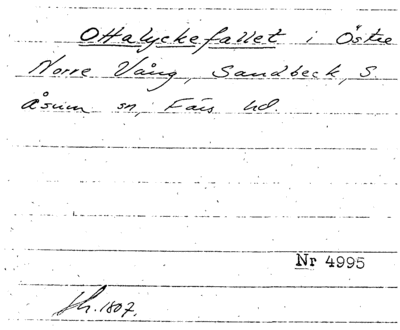 Ottalyckefallet i Östre
Norre Vång, Sandbeck, S.
Åsum sn, Färs hd.
Nr 4995
Sh. 1807.